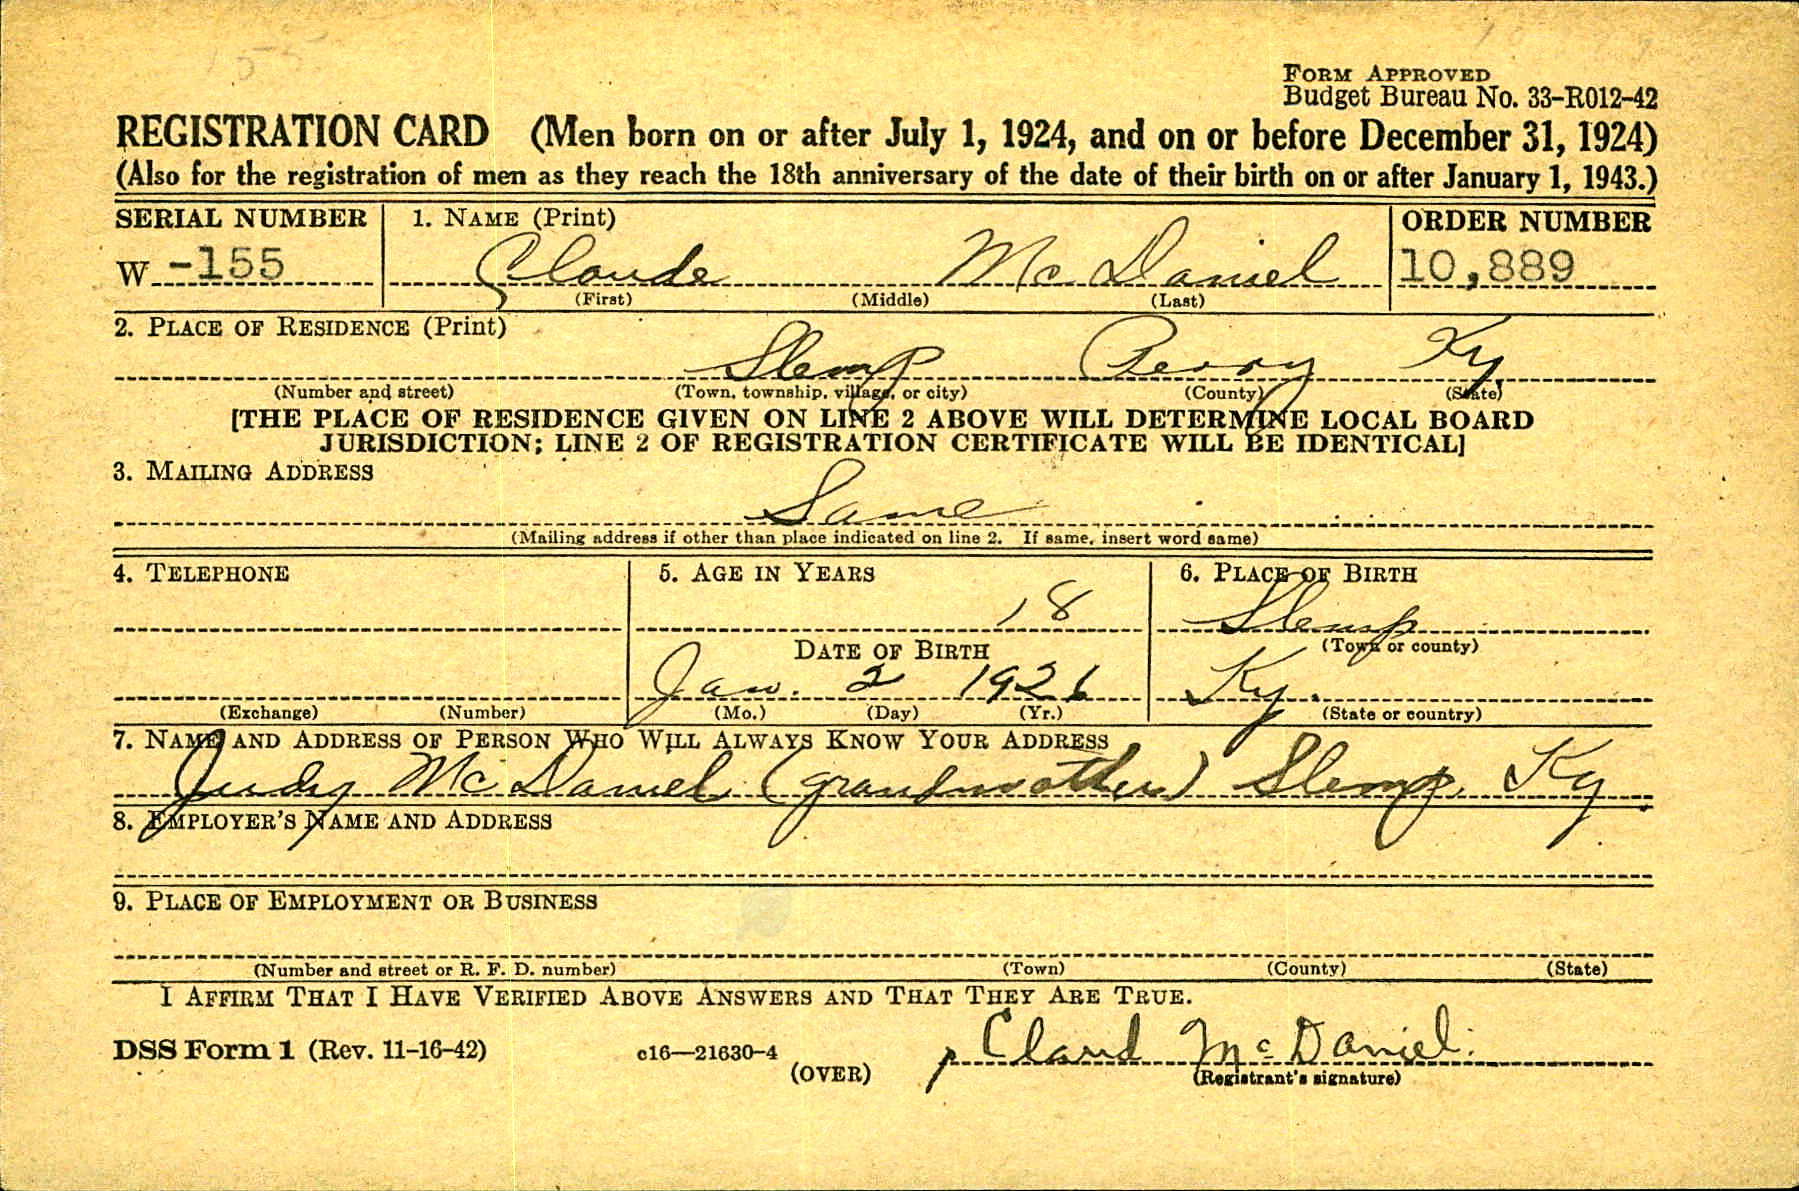 155
FORM APPROVED
Budget Bureau No. 33-R012-42
REGISTRATION CARD (Men born on or after July 1, 1924, and on or before December 31, 1924)
(Also for the registration of men as they reach the 18th anniversary of the date of their birth on or after January 1, 1943.)
SERIAL NUMBER 1. NAME (Print) ORDER NUMBER
W -155 Claude Mc Daniel 10,889
(First) (Middle) (Last)
2. PLACE OF RESIDENCE (Print)
Slemp Perry Ky.
(Number and street) (Town, township, village, or city) (County) (State)
[THE PLACE OF RESIDENCE GIVEN ON LINE 2 ABOVE WILL DETERMINE LOCAL BOARD
JURISDICTION; LINE 2 OF REGISTRATION CERTIFICATE WILL BE IDENTICAL]
3. MAILING ADDRESS
Same
(Mailing address if other than place indicated on line 2. If same, insert word same)
4. TELEPHONE 5. AGE IN YEARS 6. PLACE OF BIRTH
18 Slemp
DATE OF BIRTH (Town or county)
Jan. 2 1926 Ky.
(Exchange) (Number) (Mo.) (Day) (Yr.) (State or country)
7. NAME AND ADDRESS OF PERSON WHO WILL ALWAYS KNOW YOUR ADDRESS
Judy Mc Daniel (grandmother) Slemp, Ky.
8. EMPLOYER'S NAME AND ADDRESS
9. PLACE OF EMPLOYMENT OR BUSINESS
(Number and street or R. F. D. number) (Town) (County) (State)
I AFFIRM THAT I HAVE VERIFIED ABOVE ANSWERS AND THAT THEY ARE TRUE.
DSS Form 1 (Rev. 11-16-42) c16—21630-4 Claud McDaniel.
(OVER) (Registrant's signature)